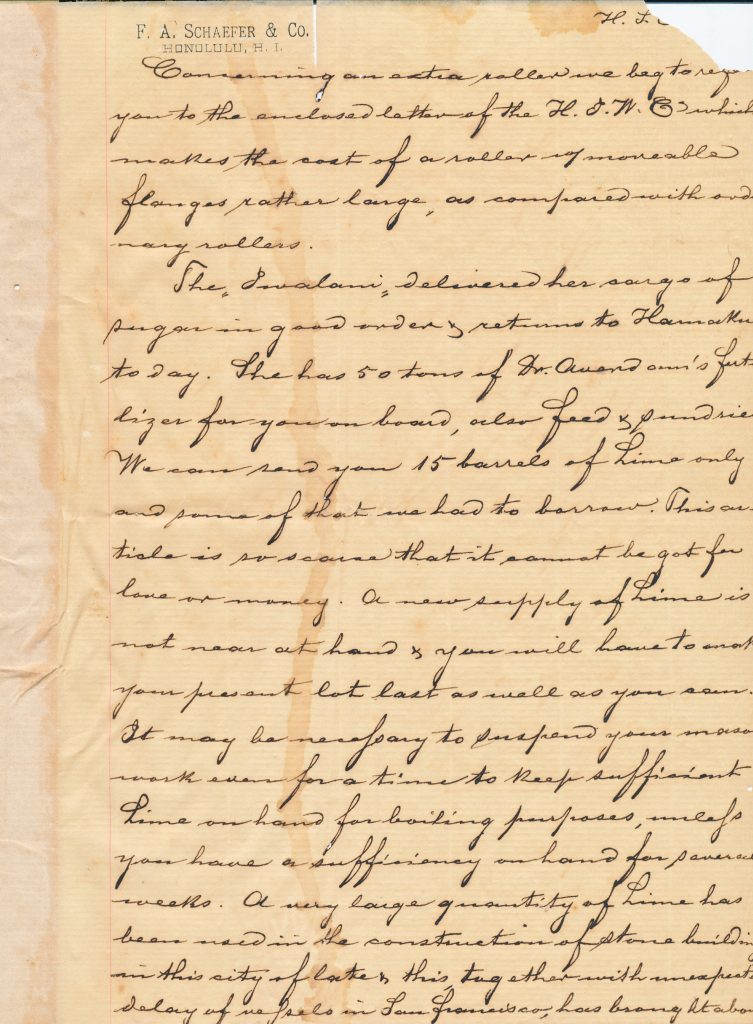 F. A. SCHAEFER & CO.
HONOLULU, H. I.
H. S.
Concerning an extra roller we beg to refe
you to the enclosed letter of the H. I. W. Co which
makes the cost of a roller w/ moveable
flanges rather large, as compared with ordi
nary rollers.
The "Iwalani" delivered her cargo of
sugar in good order & returns to Hamaku
to day. She has 50 tons of Dr. Averdam's ferti
lizer for you on board, also feed & sundries
We can send you 15 barrels of Lime only
and some of that we had to borrow. This ar-
ticle is so scarse that it cannot be got for
love or money. A new supply of Lime is
not near at hand & you will have to mak
your present lot last as well as you can.
It may be necessary to suspend your maso
work even for a time to keep sufficient
Lime on hand for boiling purposes, unless
you have a sufficiency on hand for several
weeks. A very large quantity of Lime has
been used in the construction of stone building
in this city of late & this, together with unexpecte
delay of vessels in San Francisco, has brought abou